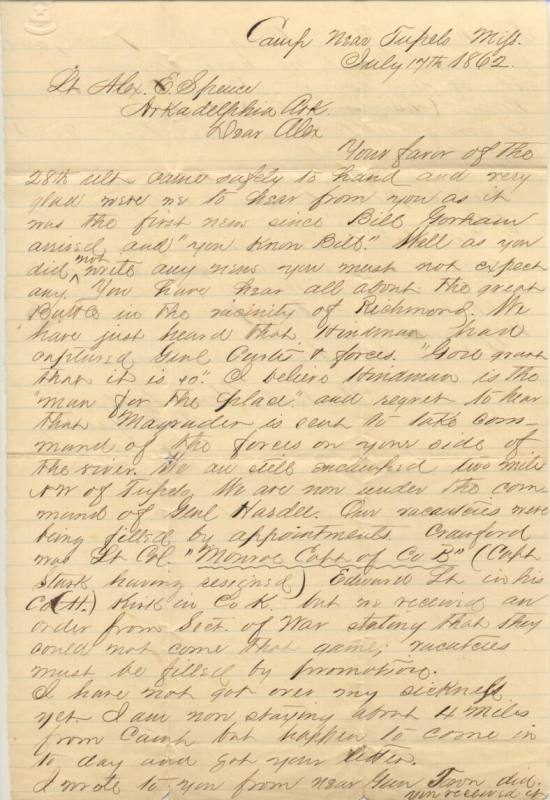 Camp Near Tupelo Miss.
July 17th 1862.
Lt Alex. E. Spence
Arkadelphia Ark
Dear Alex
Your favor of the
28th ult came safely to hand and very
glad were we to hear from you as it
was the first news since Bill Gorham
arrived, and "you know Bill." Well as you
did not write any news you must not expect
any. You have hear all about the great
Battle in the vicinity of Richmond. We
have just heard that Hindman had
captured Genl Curtis & forces. "God grant
that it is so". I believe Hindman is the
"man for the place" and regret to hear
that Magruder is sent to take com-
mand of the forces on your side of
the river. We are still encamped two miles
NW of Tupelo. We are now under the com
mand of Genl Hardee. Our vacancies were
being filled by appointments. Crawford
was Lt Col "Monroe Capt of Co B" (Capt
Stark having resigned) Edwards Lt in his
Co (H.) Kirk in Co K. but we received an
order from Sect. of War stating that they
could not come that game; vacancies
must be filled by promotion.
I have not got over my sickness
yet. I am now staying about 4 miles
from Camp but happen to come in
to day and got your letter.
I wrote to you from near Gun Town did
you receive it